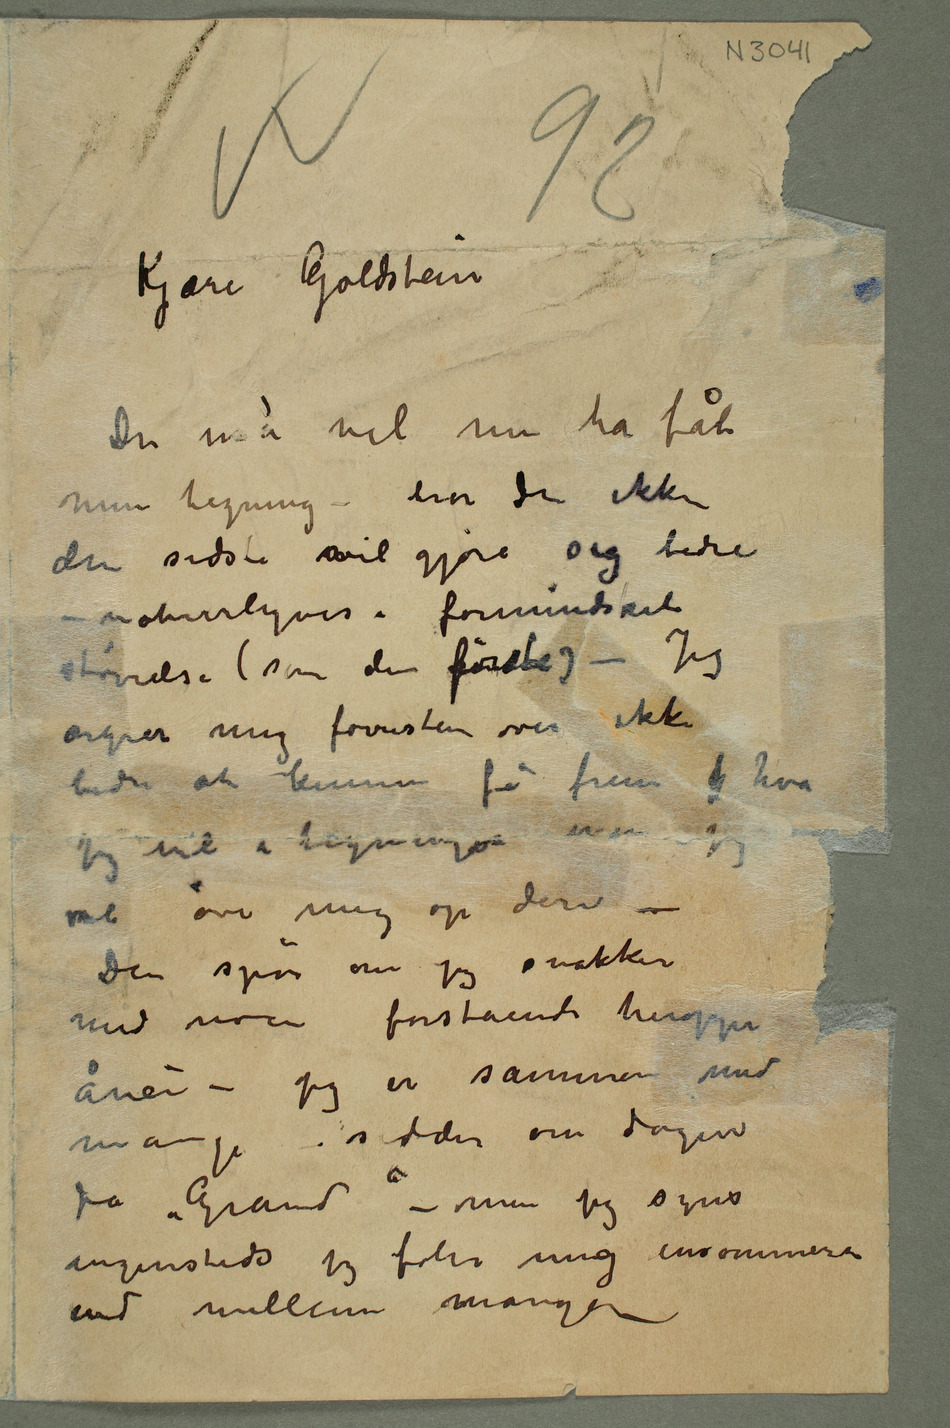 N3041
92
Kjære Goldstein
Du må vel nu ha fåt
min tegning – tror du ikke
den sidste vil gjøre sig bedre
– naturligvis i formindsket
størrelse (som den første) – Jeg
ærgrer mig forresten over ikke
bedre at kunne få frem hva
jeg vil i tegningen men jeg
vil öve mig op deri —
Du spör om jeg snakker
med noen forstående heroppe
ånei – jeg er sammen med
mange – sidder om dagen
på „Grand“ – men jeg syns
ingensteds jeg föler mig ensommere
end mellem mange